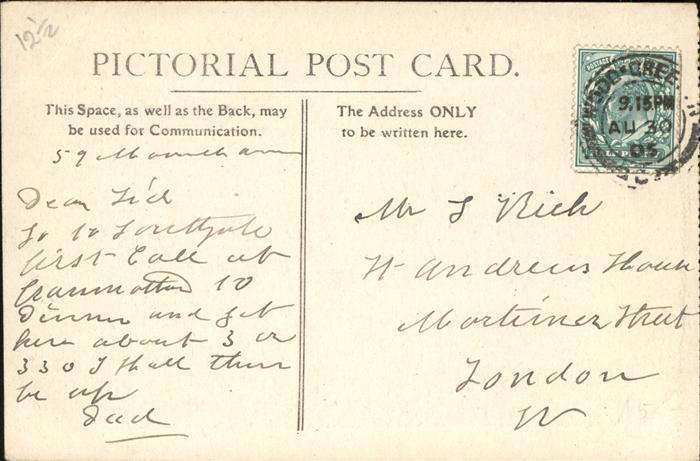 12½
PICTORIAL POST CARD.
This Space, as well as the Back, may
be used for Communication.
The Address ONLY
to be written here.
WOOD GREEN
9.15 PM
AU 30
05
POSTAGE
59
Dear Sid
Go to Southgate
first Call at
Granmother to
Dinner and get
here about 3 or
330 I shall then
be up
Dad
Mr S Rich
St Andrews House
Mortimer Street
London
W